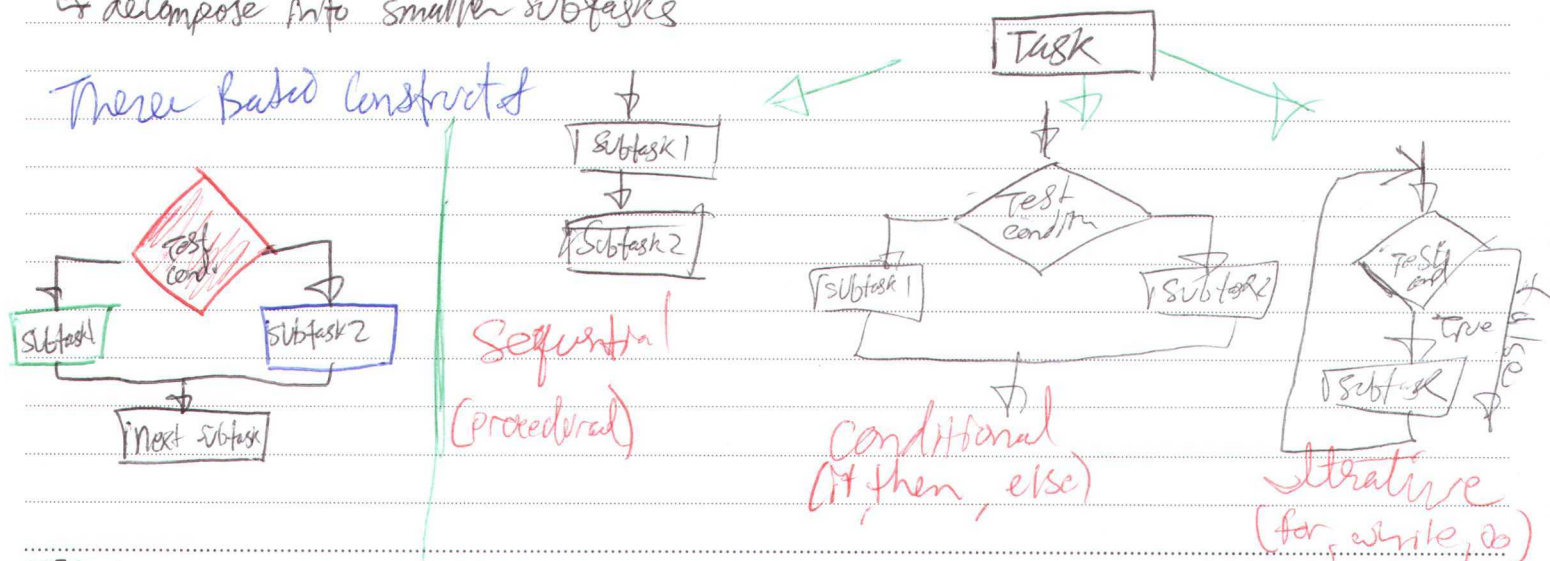 ↳ decompose into smaller subtasks
Task
Theree Based Constructs
subtask 1
subtask 2
Test
cond.
subtask1
subtask 2
next subtask
Sequential
(procedural)
Test
condition
subtask 1
subtask2
Conditional
(if, then, else)
Test
cond
True
false
subtask
Iterative
(for, while, do)